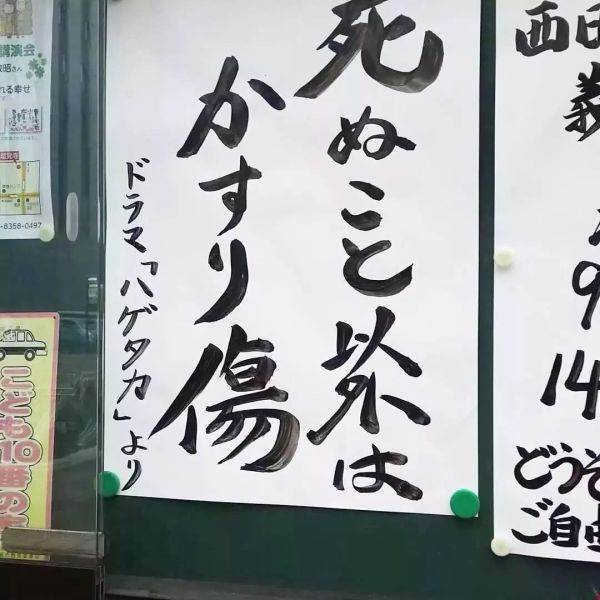 死ぬこと以外は
かすり傷
ドラマ「ハゲタカ」より
西田
義
9
14
どうぞ
ご自由
講演会
昭さん
れる幸せ
-8358-0497
こども110番の